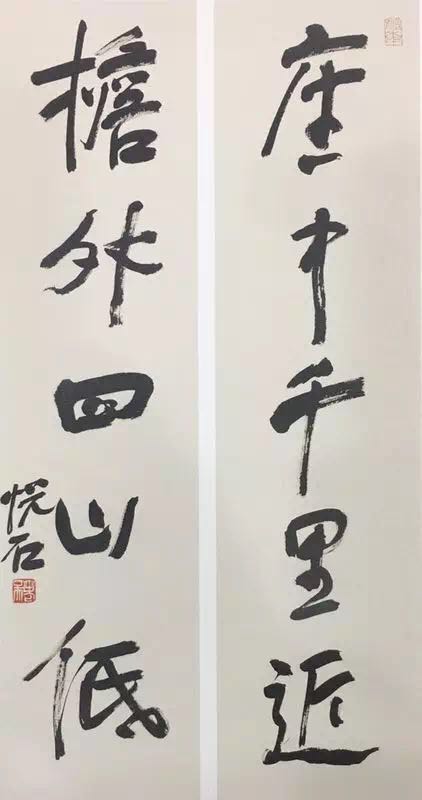 座中千里近
檐外四山低
悦石